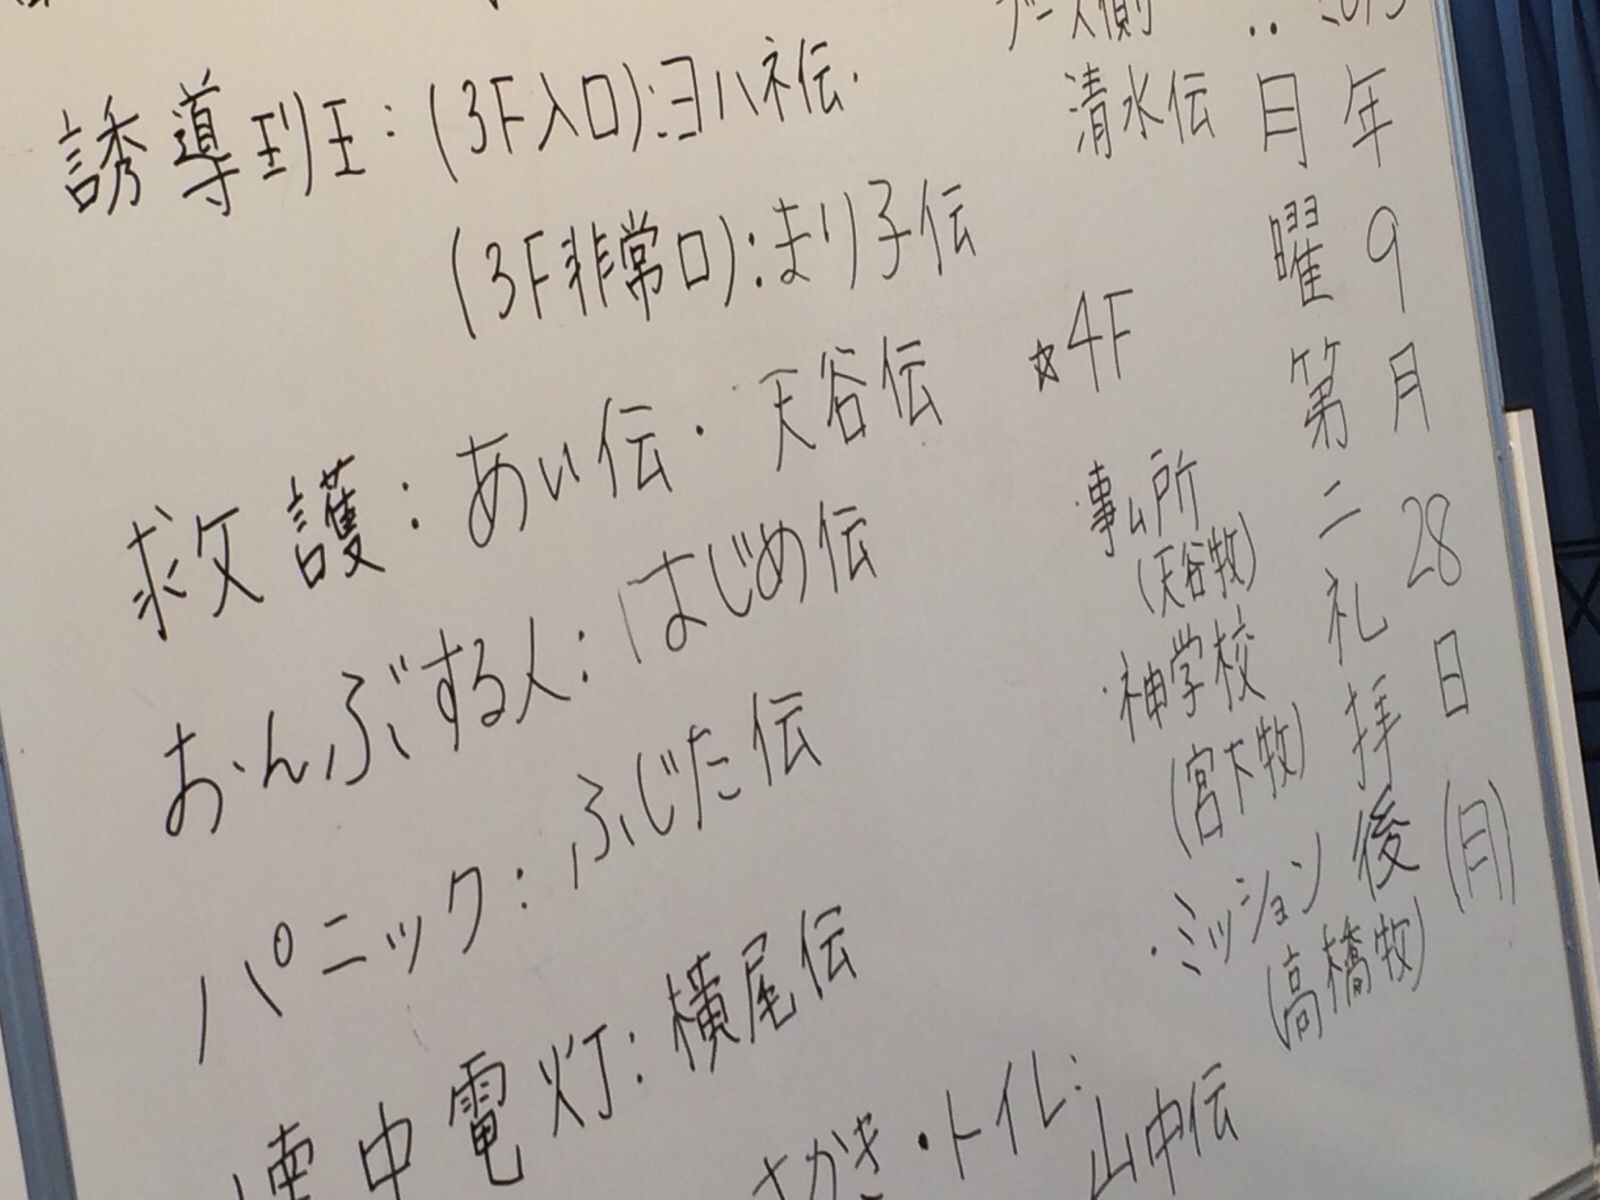 誘導班：(3F入口)：ヨハネ伝
(3F非常口)：まり子伝
救護：あい伝・天谷伝
おんぶする人：はじめ伝
パニック：ふじた伝
懐中電灯：横尾伝
・トイレ：
山中伝
ブース側
清水伝
☆4F
・事ム所
(天谷牧)
・神学校
(宮下牧)
・ミッション
(高橋牧)
月曜第二礼拝後
年9月28日(月)